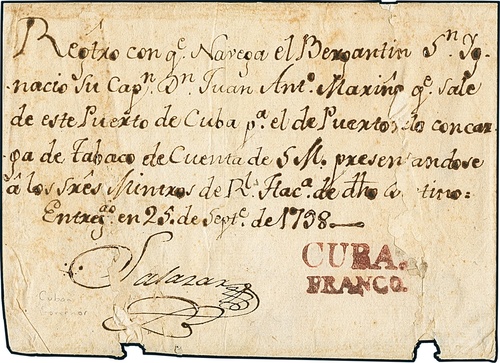 Regtro con qe. Navega el Bergantin Sn. Ig-
nacio su Capn. Dn. Juan Anto. Mariño qe. Sale
de este Puerto de Cuba pa. el de Puerto con car-
ga de Tabaco de Cuenta de S M. presentandose
á los Srēs Mintros de Rl. Hacda. de dho
Entregdo en 25. de Septe. de 1798
Salazar
CUBA.
FRANCO.
Cuban
governor